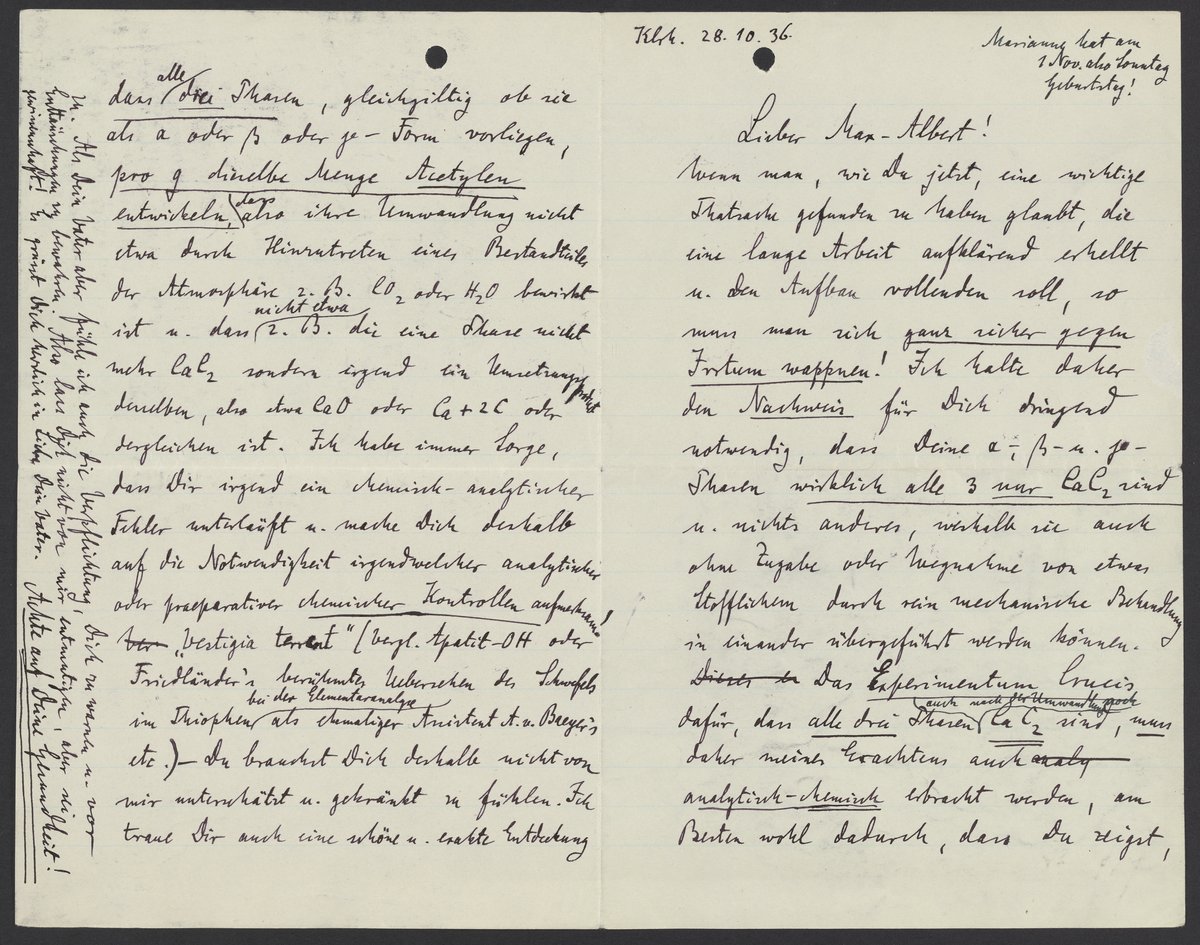 Klrh. 28.10.36.
Marianne hat am
1 Nov. also Sonntag
Geburtstag!
Lieber Max-Albert!
Wenn man, wie Du jetzt, eine wichtige
Thatsache gefunden zu haben glaubt, die
eine lange Arbeit aufklärend erhellt
u. den Aufbau vollenden soll, so
muss man sich ganz sicher gegen
Irrtum wappnen! Ich halte daher
den Nachweis für Dich dringend
notwendig, dass Deine α-, β- u. γ-
Phasen wirklich alle 3 nur CaC2 sind
u. nichts anderes, weshalb sie auch
ohne Zugabe oder Wegnahme von etwas
Stofflichem durch rein mechanische Behandlung
in einander übergeführt werden können.
Dieses Das Experimentum Crucis
auch nach der Umwandlung noch
dafür, dass alle drei Phasen CaC2 sind, muss
daher meines Erachtens auch analy
analytisch-chemisch erbracht werden, am
Besten wohl dadurch, dass Du zeigst,
alle
dass drei Phasen, gleichgiltig ob sie
als α oder β oder γ- Form vorliegen,
pro g dieselbe Menge Acetylen
dass
entwickeln, also ihre Umwandlung nicht
etwa durch Hinzutreten eines Bestandteiles
der Atmosphäre z.B. CO2 oder H2O bewirkt
nicht etwa
ist u. dass z.B. die eine Phase nicht
mehr CaC2 sondern irgend ein Umsetzungsprodukt
desselben, also etwa CaO oder Ca+2C oder
dergleichen ist. Ich habe immer Sorge,
dass Dir irgend ein chemisch-analytischer
Fehler unterläuft u. mache Dich deshalb
auf die Notwendigkeit irgendwelcher analytischer
oder praeparativer chemischer Kontrollen aufmerksam!
ber „Vestigia terrent" (Vergl. Apatit-OH oder
Friedländer's berühmtes Uebersehen des Schwefels
bei der Elementaranalyse
im Thiophen, als ehemaliger Assistent A.v. Baeyer's
etc.) – Du brauchst Dich deshalb nicht von
mir unterschätzt u. gekränkt zu fühlen. Ich
traue Dir auch eine schöne u. exakte Entdeckung
zu. Als Dein Vater aber fühle ich auch die Verpflichtung, Dich zu warnen u. vor
Enttäuschungen zu bewahren. Also lass Dich nicht von mir entmutigen, aber sei
gewissenhaft! Es grüsst Dich herzlich in Liebe Dein Vater. Achte auf Deine Gesundheit!